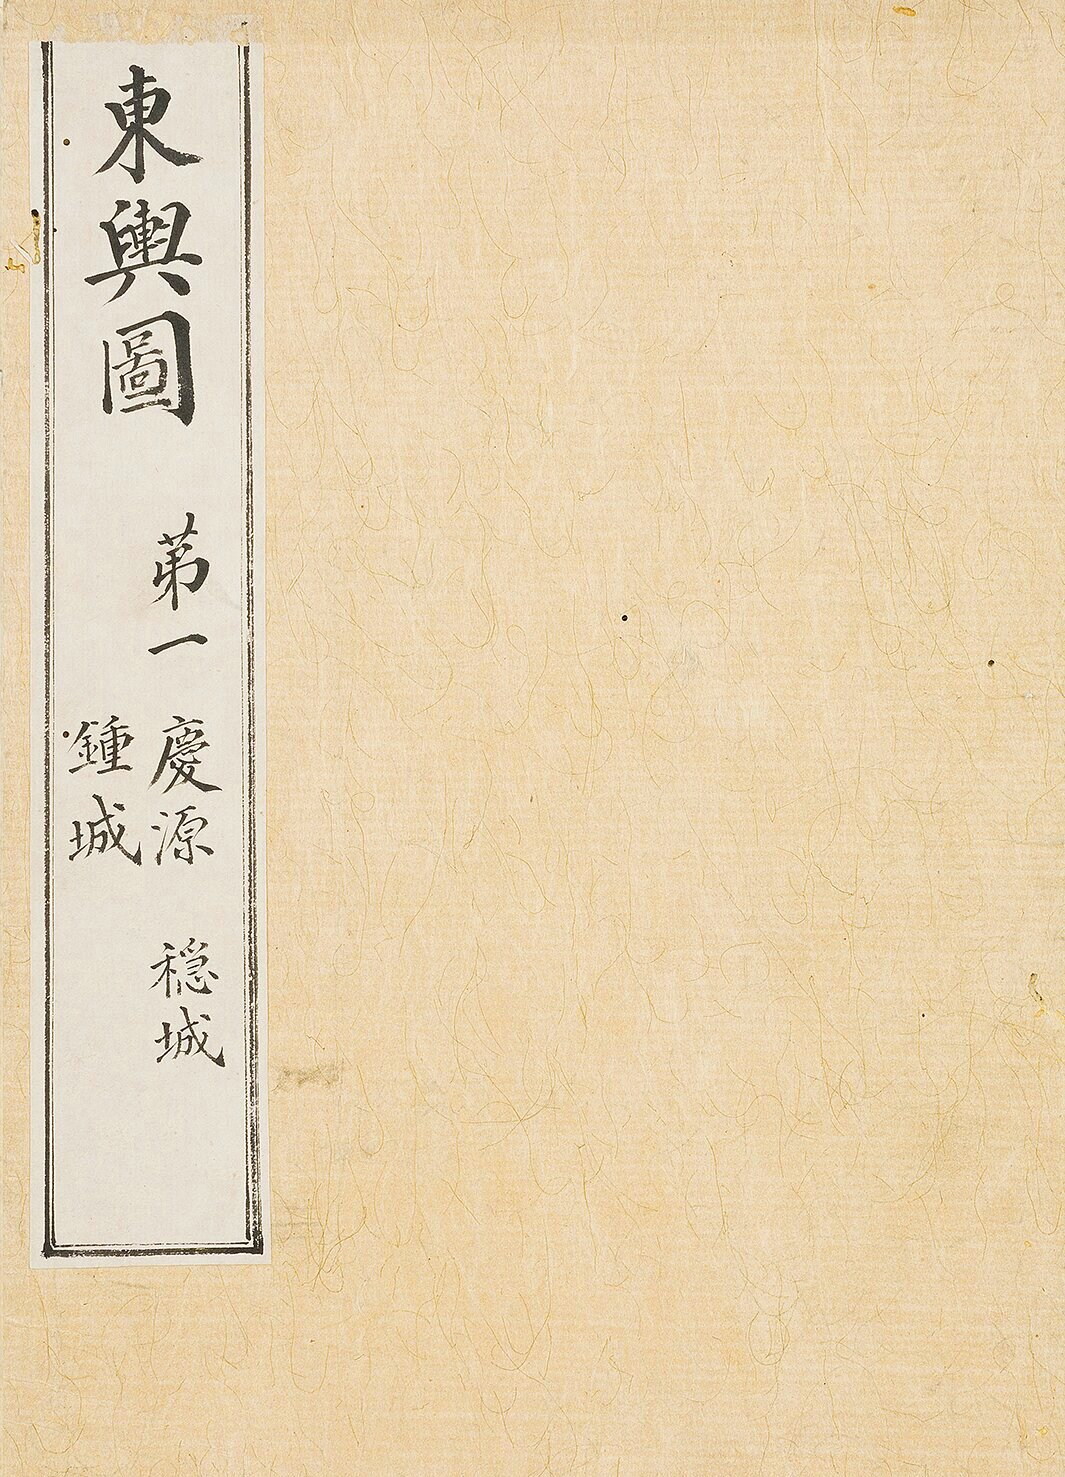 東輿圖
第一
慶源 穏城
鍾城